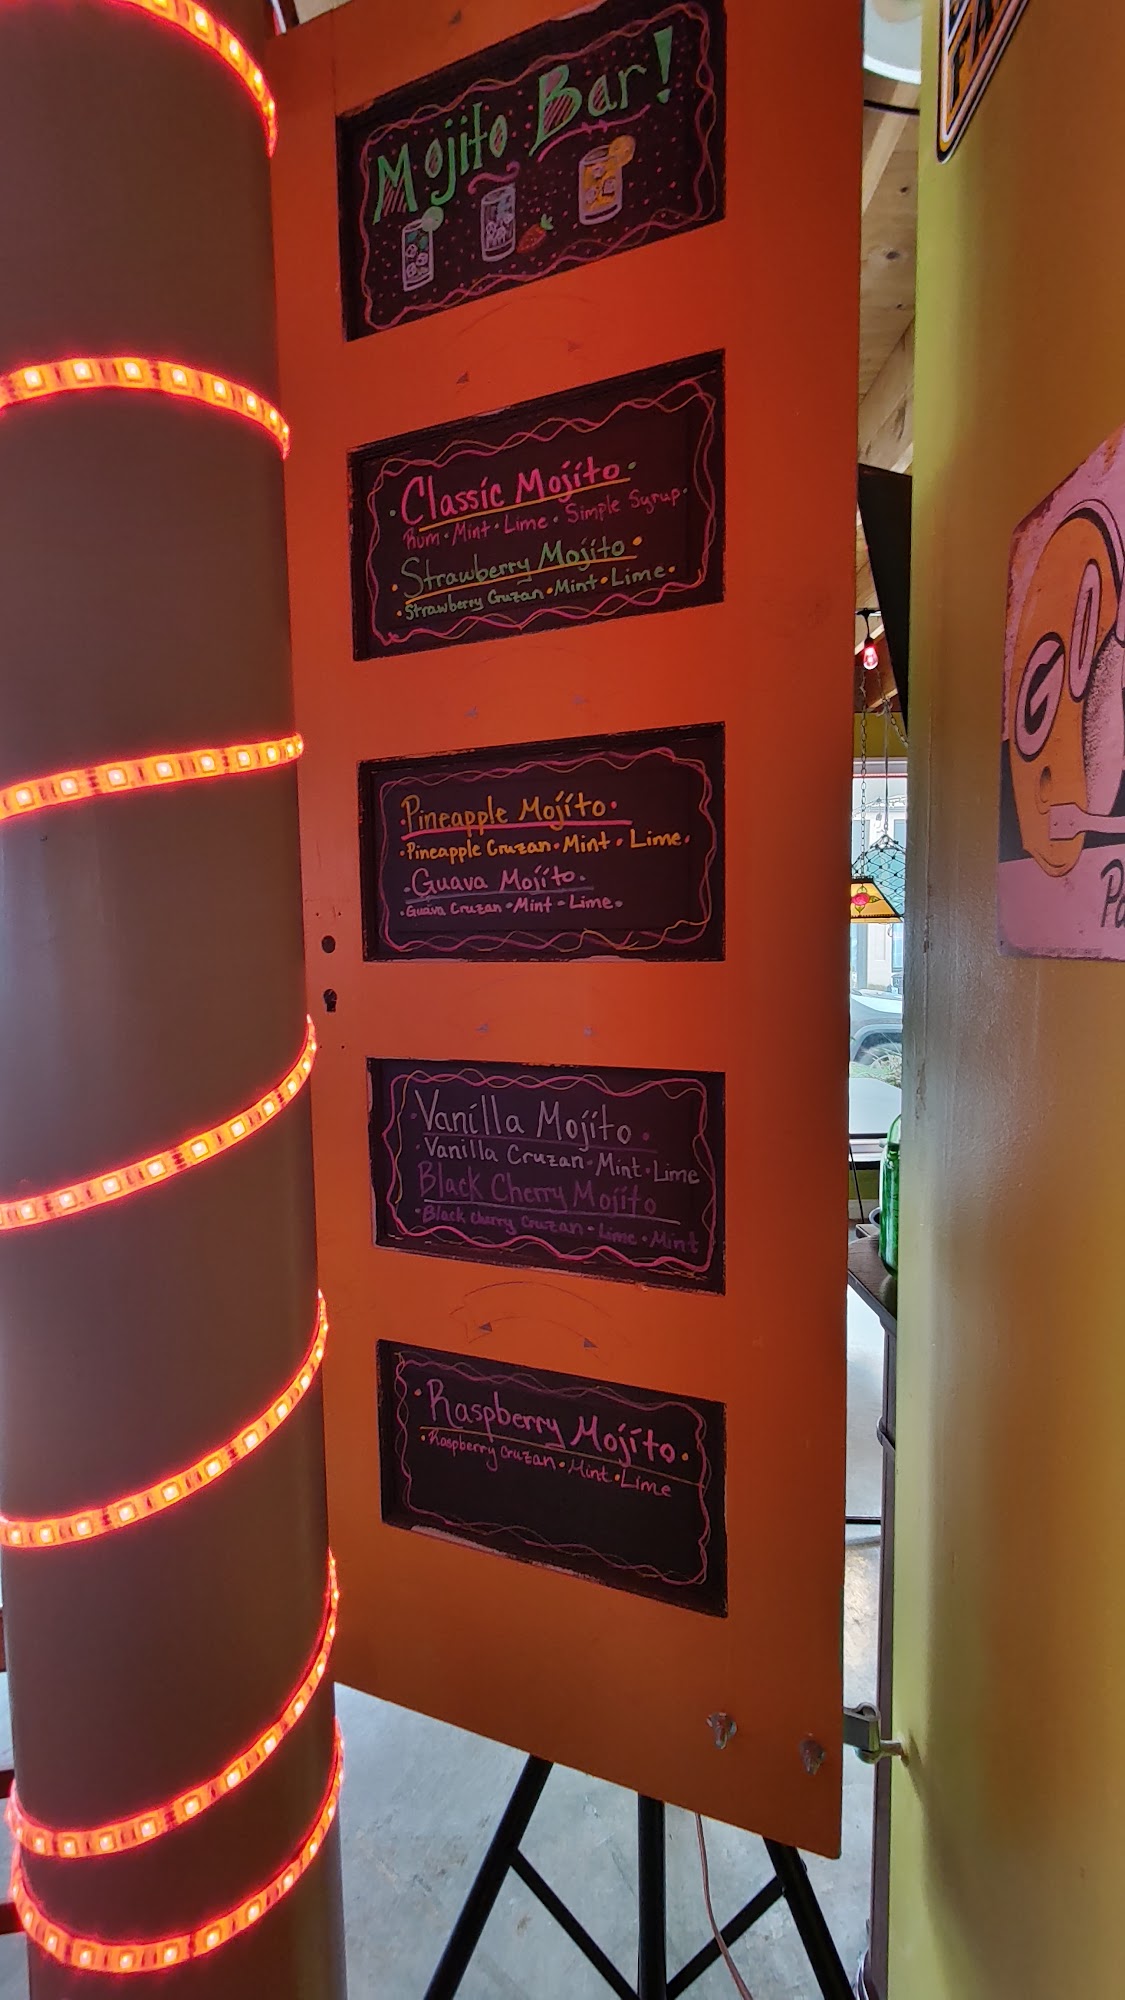 Mojito Bar!
Classic Mojito
Rum • Mint • Lime • Simple Syrup
Strawberry Mojito
Strawberry Cruzan • Mint • Lime
Pineapple Mojito
Pineapple Cruzan • Mint • Lime
Guava Mojito
Guava Cruzan • Mint • Lime
Vanilla Mojito
Vanilla Cruzan • Mint • Lime
Black Cherry Mojito
Black Cherry Cruzan • Lime • Mint
Raspberry Mojito
Raspberry Cruzan • Mint • Lime
GO